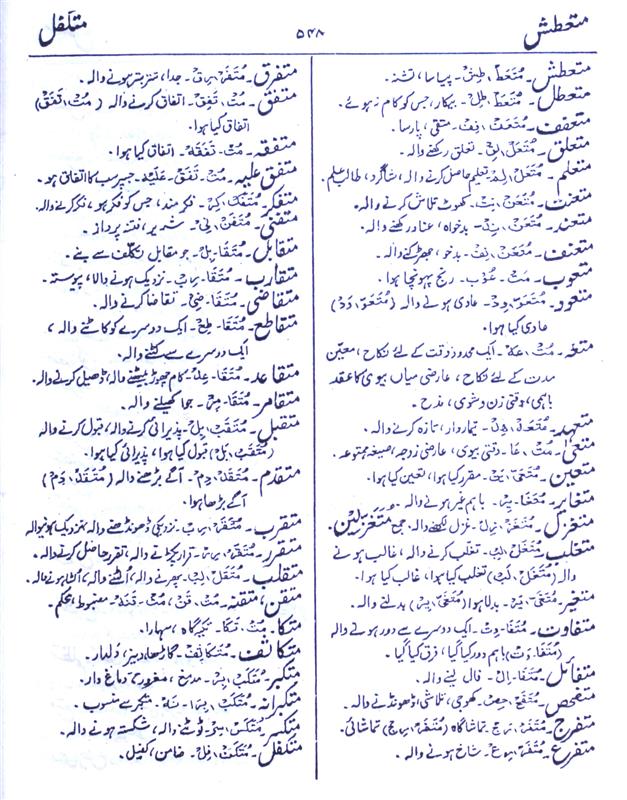 متعطش
۵۴۸
متکفل
متعطش۔ مُتَعَطْ، طِش۔ پیاسا، تشنہ۔
متعطل۔ مُتَعَطْ، طِل۔ بیکار، جس کو کام نہ ہوئے۔
متعفف۔ مُتَعَفْ، فِف۔ متقی، پارسا۔
متعلق۔ مُتَعَلْ، لِق۔ تعلق رکھنے والہ۔
متعلم۔ مُتَعَلْ، لِم۔ تعلیم حاصل کرنے والہ، شاگرد، طالب علم۔
متعنت۔ مُتَعَنْ، نِت۔ کھوٹ تلاش کرنے والہ۔
متعند۔ مُتَعَنْ، نِد۔ بدخواہ، عناد رکھنے والہ۔
متعنف۔ مُتَعَنْ، نِف۔ بدخو، جھڑکنے والہ۔
متعوب۔ مَتْ۔ عُوْب۔ رنج پہونچا ہوا۔
متعود۔ مُتَعَوْ، وِد۔ عادی ہونے والہ (مُتَعَوْ، وَدْ)
عادی کیا ہوا۔
متعہ۔ مُتْ، عَہ۔ ایک محدود وقت کے لئے نکاح، معین
مدت کے لئے نکاح، عارضی میاں بیوی کا عقد
باہمی، وقتی زن و شوی،
متعہد۔ مُتَعَہْ، ہِد۔ تیماردار، تازہ کرنے والہ۔
متعیٰ۔ مُتْ، عَا۔ وقتی بیوی، عارضی زوجہ، صیغہ ممتوعہ۔
متعین۔ مُتَعَیْ، یَن۔ مقرر کیا ہوا، تعین کیا ہوا۔
متغایر۔ مُتَغَا۔ یِر۔ باہم غیر ہونے والہ۔
متغزل۔ مُتَغَزْ، زِل۔ غزل لکھنے والہ۔ جمع متغزلین۔
متغلب۔ مُتَغَلْ، لِب۔ تغلب کرنے والہ، غالب ہونے
والہ (مُتَغَلْ، لَب) تغلب کیا ہوا، غالب کیا ہوا۔
متغیر۔ مُتَغَیْ، یَر۔ بدلا ہوا (مُتَغَیْ، یِر) بدلنے والہ۔
متفاوت۔ مُتَفَا۔ وِت۔ ایک دوسرے سے دور ہونے والہ
(مُتَفَا، وَت) باہم دور کیا گیا، فرق کیا گیا۔
متفائل۔ مُتَفَا۔ اِل۔ فال لینے والہ۔
متفحص۔ مُتَفَحْ، حِص۔ کھوجی، تلاشی، ڈھونڈنے والہ۔
متفرج۔ مُتَفَرْ، رَج۔ تماشا گاہ (مُتَفَرْ، رِج) تماشائی۔
متفرع۔ مُتَفَرْ، رِع۔ شاخ ہونے والہ۔
متفرق۔ مُتَفَرْ، رِق۔ جدا، تتر بتر ہونے والہ۔
متفق۔ مُتْ، تَفِق۔ اتفاق کرنے والہ (مُتْ، تَفَقْ)
اتفاق کیا ہوا۔
متفقہ۔ مُتْ۔ تَفَقَہ۔ اتفاق کیا ہوا۔
متفق علیہ۔ مُتْ۔ تَفَقْ۔ عَلَیْہ۔ جس پر سب کا اتفاق ہو۔
متفکر۔ مُتَفَکْ، کِر۔ فکر مند، جس کو فکر ہو، فکر کرنے والہ۔
متفنی۔ مُتَفَنْ، نی۔ شریر، فتنہ پرداز۔
متقابل۔ مُتَقَا۔ بِل۔ جو مقابل تکلف سے بنے۔
متقارب۔ مُتَقَا۔ رِب۔ نزدیک ہونے والا، پیوستہ۔
متقاضی۔ مُتَقَا۔ ضِی۔ تقاضا کرنے والہ۔
متقاطع۔ مُتَقَا۔ طِع۔ ایک دوسرے کو کاٹنے والہ،
ایک دوسرے سے کٹنے والہ۔
متقاعد۔ مُتَقَا۔ عِد۔ کام چھوڑ بیٹھنے والہ، ڈھیل کرنے والہ۔
متقامر۔ مُتَقَا۔ مِر۔ جوا کھیلنے والہ۔
متقبل۔ مُتَقَبْ، بِل۔ پذیرائی کرنے والہ، قبول کرنے والہ
(مُتَقَبْ، بَل) قبول کیا ہوا، پذیرائی کیا ہوا۔
متقدم۔ مُتَقَدْ، دِم۔ آگے بڑھنے والہ (مُتَقَدْ، دَم)
آگے بڑھا ہوا۔
متقرب۔ مُتَقَرْ، رِب۔ نزدیکی ڈھونڈھنے والہ، نزدیک ہونیوالہ
متقرر۔ مُتَقَرْ، رِر۔ قرار پکڑنے والہ، تقرر حاصل کرنے والہ۔
متقلب۔ مُتَقَلْ، لِب۔ پھرنے والہ، اُلٹنے والہ، اُلٹا ہونے والہ۔
متقن، متقنہ۔ مُتْ، قَنْ، مُتْ۔ قَنَہ۔ مضبوط، محکم۔
متکا۔ مُتْ، تَکَا۔ تکیہ گاہ، سہارا۔
متکاثف۔ مُتَکَا، ثِف۔ گاڑھا، دبیز، دَلدار۔
متکبر۔ مُتَکَبْ، بِر۔ مغرور، دماغ دار۔
متکبرانہ۔ مُتَکَبْ، بِرَا۔ نَہ۔ متکبر سے منسوب۔
متکسر۔ مُتَکَسْ، سِر۔ ٹوٹنے والہ، شکستہ ہونے والہ۔
متکفل۔ مُتَکَفْ، فِل۔ ضامن، کفیل۔